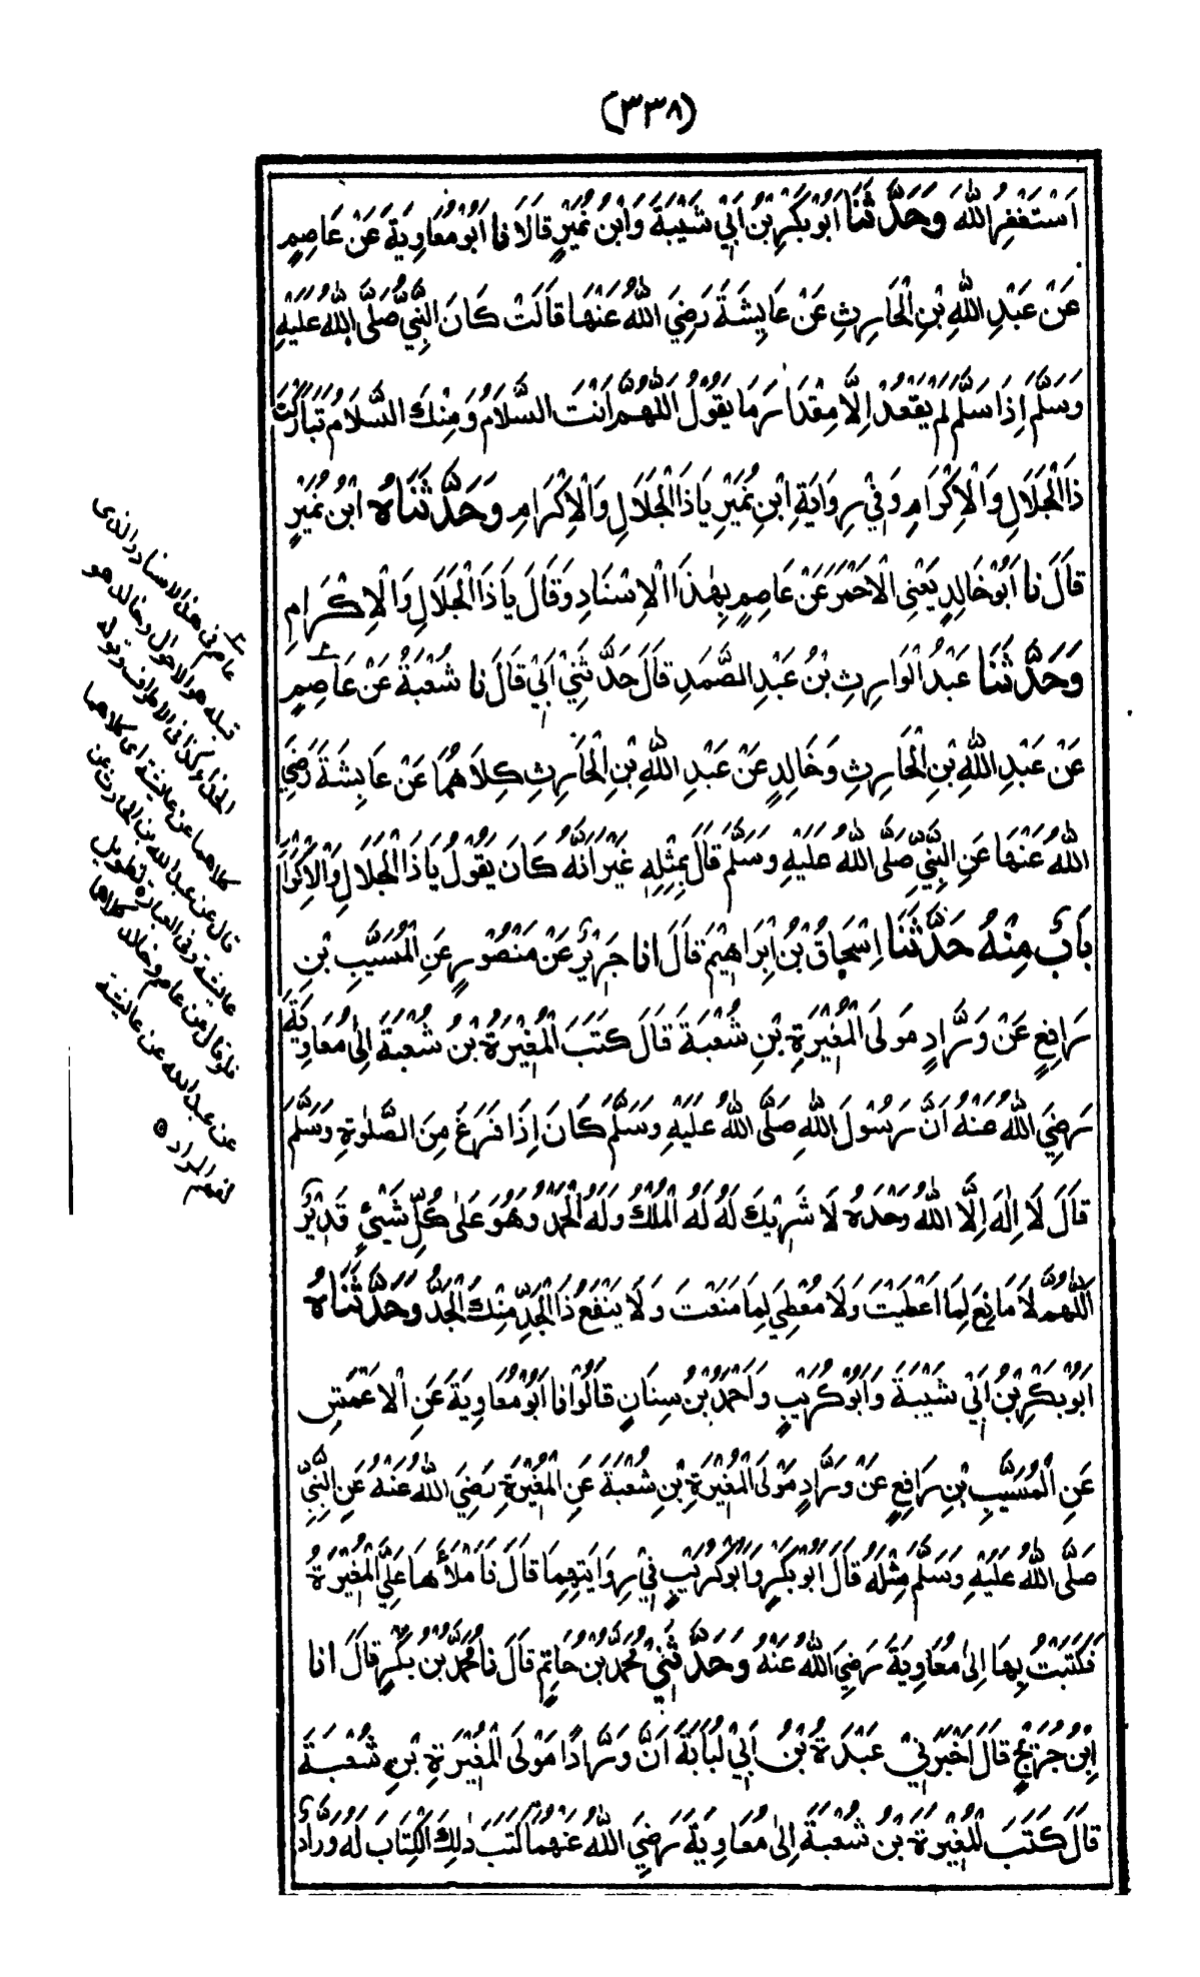 (٣٣٨)
اَسْتَغْفِرُ اللهَ وَحَدَّثَنَا اَبُوْ بَكْرِ بْنُ اَبِيْ شَيْبَةَ وَابْنُ نُمَيْرٍ قَالَا نا اَبُوْ مُعَاوِيَةَ عَنْ عَاصِمٍ
عَنْ عَبْدِ اللهِ بْنِ الْحَارِثِ عَنْ عَايِشَةَ رَضِيَ اللهُ عَنْهَا قَالَتْ كَانَ النَّبِيُّ صَلَّى اللهُ عَلَيْهِ
وَسَلَّمَ اِذَا سَلَّمَ لَمْ يَقْعُدْ اِلَّا مِقْدَارَ مَا يَقُوْلُ اللّٰهُمَّ اَنْتَ السَّلَامُ وَمِنْكَ السَّلَامُ تَبَارَكْتَ
ذَا الْجَلَالِ وَالْاِكْرَامِ وَفِيْ رِوَايَةِ ابْنِ نُمَيْرٍ يَا ذَا الْجَلَالِ وَالْاِكْرَامِ وَحَدَّثَنَاهُ ابْنُ نُمَيْرٍ
قَالَ نا اَبُوْ خَالِدٍ يَعْنِى الْاَحْمَرَ عَنْ عَاصِمٍ بِهٰذَا الْاِسْنَادِ وَقَالَ يَا ذَا الْجَلَالِ وَالْاِكْرَامِ
وَحَدَّثَنَا عَبْدُ الْوَارِثِ بْنُ عَبْدِ الصَّمَدِ قَالَ حَدَّثَنِيْ اَبِيْ قَالَ نا شُعْبَةُ عَنْ عَاصِمٍ
عَنْ عَبْدِ اللهِ بْنِ الْحَارِثِ وَخَالِدٍ عَنْ عَبْدِ اللهِ بْنِ الْحَارِثِ كِلَاهُمَا عَنْ عَايِشَةَ رَضِيَ
اللهُ عَنْهَا عَنِ النَّبِيِّ صَلَّى اللهُ عَلَيْهِ وَسَلَّمَ قَالَ بِمِثْلِهٖ غَيْرَ اَنَّهُ كَانَ يَقُوْلُ يَا ذَا الْجَلَالِ وَالْاِكْرَامِ
بَابٌ مِنْهُ حَدَّثَنَا اِسْحَاقُ بْنُ اِبْرَاهِيْمَ قَالَ انا جَرِيْرٌ عَنْ مَنْصُوْرٍ عَنِ الْمُسَيَّبِ بْنِ
رَافِعٍ عَنْ وَرَّادٍ مَولَى الْمُغِيْرَةِ بْنِ شُعْبَةَ قَالَ كَتَبَ الْمُغِيْرَةُ بْنُ شُعْبَةَ اِلٰى مُعَاوِيَةَ
رَضِيَ اللهُ عَنْهُ اَنَّ رَسُوْلَ اللهِ صَلَّى اللهُ عَلَيْهِ وَسَلَّمَ كَانَ اِذَا فَرَغَ مِنَ الصَّلٰوةِ وَسَلَّمَ
قَالَ لَا اِلٰهَ اِلَّا اللهُ وَحْدَهُ لَا شَرِيْكَ لَهُ لَهُ الْمُلْكُ وَلَهُ الْحَمْدُ وَهُوَ عَلٰى كُلِّ شَيْئٍ قَدِيْرٌ
اَللّٰهُمَّ لَا مَانِعَ لِمَا اَعْطَيْتَ وَلَا مُعْطِيَ لِمَا مَنَعْتَ وَلَا يَنْفَعُ ذَا الْجَدِّ مِنْكَ الْجَدُّ وَحَدَّثَنَاهُ
اَبُوْ بَكْرِ بْنُ اَبِيْ شَيْبَةَ وَاَبُوْ كُرَيْبٍ وَاَحْمَدُ بْنُ سِنَانٍ قَالُوْا نا اَبُوْ مُعَاوِيَةَ عَنِ الْاَعْمَشِ
عَنِ الْمُسَيَّبِ بْنِ رَافِعٍ عَنْ وَرَّادٍ مَوْلَى الْمُغِيْرَةِ بْنِ شُعْبَةَ عَنِ الْمُغِيْرَةِ رَضِيَ اللهُ عَنْهُ عَنِ النَّبِيِّ
صَلَّى اللهُ عَلَيْهِ وَسَلَّمَ مِثْلَهُ قَالَ اَبُوْ بَكْرٍ وَاَبُوْ كُرَيْبٍ فِيْ رِوَايَتِهِمَا قَالَ فَاَمْلَاَهَا عَلَيَّ الْمُغِيْرَةُ
فَكَتَبْتُ بِهَا اِلٰى مُعَاوِيَةَ رَضِيَ اللهُ عَنْهُ وَحَدَّثَنِيْ مُحَمَّدُ بْنُ حَاتِمٍ قَالَ نا مُحَمَّدُ بْنُ بَكْرٍ قَالَ انا
ابْنُ جُرَيْجٍ قَالَ اَخْبَرَنِيْ عَبْدَةُ بْنُ اَبِيْ لُبَابَةَ اَنَّ وَرَّادًا مَوْلَى الْمُغِيْرَةِ بْنِ شُعْبَةَ
قَالَ كَتَبَ الْمُغِيْرَةُ بْنُ شُعْبَةَ اِلٰى مُعَاوِيَةَ رَضِيَ اللهُ عَنْهُمَا كَتَبَ ذٰلِكَ الْكِتَابَ لَهُ وَرَّادٌ
عاصم فى هذا الاسناد والذى
قبله هو الاحول وخالد هو
الحذاء كذا فى الاطراف وقوله
كلاهما عن عائشة اى كلاهما
قال عن عبدالله بن الحارث عن
عائشة وفى العبارة تطويل
فلو قال عن عاصم وخالد كلاهما
عن عبدالله عن عائشة
لفهم المراد